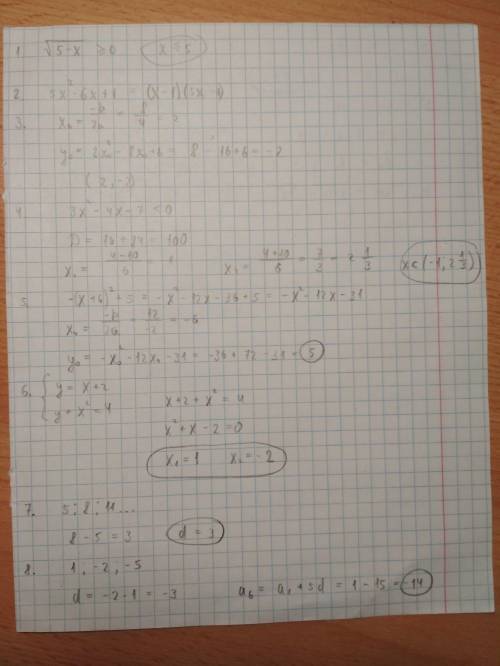 1. √5-x ≥0 x ≤ 5
2. 5x² - 6x + 1 = (x-1)(5x-1)
3. x₀ = -b/2a = 8/4 = 2
y₀ = 2x₀² - 8x₀ + 6 = 8 - 16 + 6 = -2
(2, -2)
4. 3x² - 4x - 7 < 0
D = 16 + 84 = 100
x₁ = 4-10/6 = -1 x₂ = 4+10/6 = 7/3 = 2 1/3 x ∈ (-1, 2 1/3)
5. -(x+6)² + 5 = -x² - 12x - 36 + 5 = -x² - 12x - 31
x₀ = -b/2a = 12/-2 = -6
y₀ = -x₀² - 12x₀ - 31 = -36 + 72 - 31 = 5
6. { y = x+2
y + x² = 4 x+2+x² = 4
x² + x - 2 = 0
x₁ = 1 x₂ = -2
7. 5; 8; 11 ...
8 - 5 = 3 d = 3
8. 1, -2, -5
d = -2 - 1 = -3 a₆ = a₁ + 5d = 1 - 15 = -14